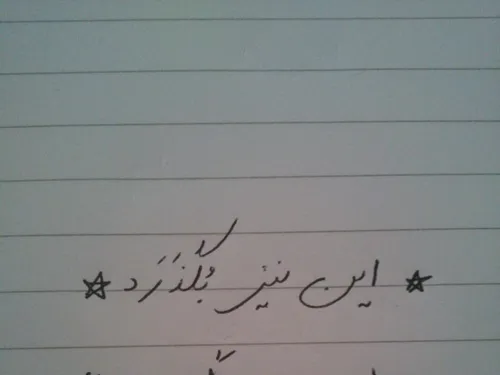 ★ این نیز بُگذَرَد ★